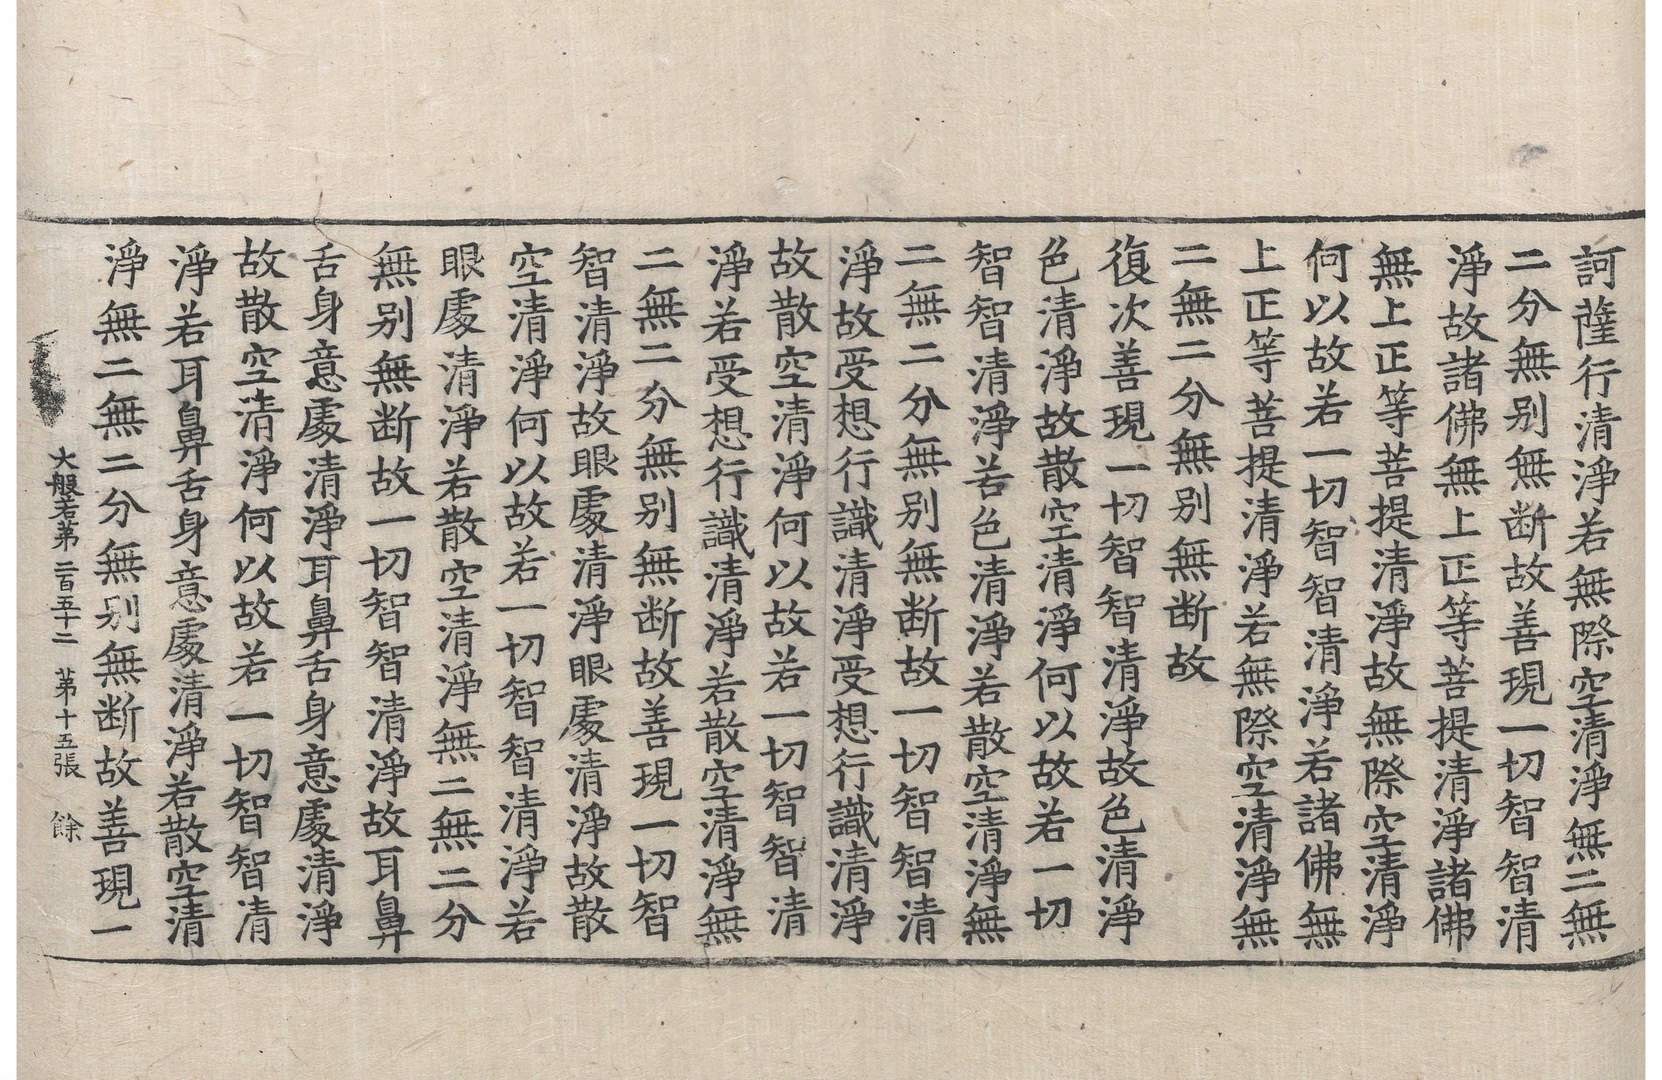 訶薩行清淨若無際空清淨無二無
二分無别無断故善現一切智智清
淨故諸佛無上正等菩提清淨諸佛
無上正等菩提清淨故無際空清淨
何以故若一切智智清淨若諸佛無
上正等菩提清淨若無際空清淨無
二無二分無别無断故
復次善現一切智智清淨故色清淨
色清淨故散空清淨何以故若一切
智智清淨若色清淨若散空清淨無
二無二分無别無断故一切智智清
淨故受想行識清淨受想行識清淨
故散空清淨何以故若一切智智清
淨若受想行識清淨若散空清淨無
二無二分無别無断故善現一切智
智清淨故眼處清淨眼處清淨故散
空清淨何以故若一切智智清淨若
眼處清淨若散空清淨無二無二分
無别無断故一切智智清淨故耳鼻
舌身意處清淨耳鼻舌身意處清淨
故散空清淨何以故若一切智智清
淨若耳鼻舌身意處清淨若散空清
淨無二無二分無别無断故善現一
大般若第二百五十二 第十五張 餘